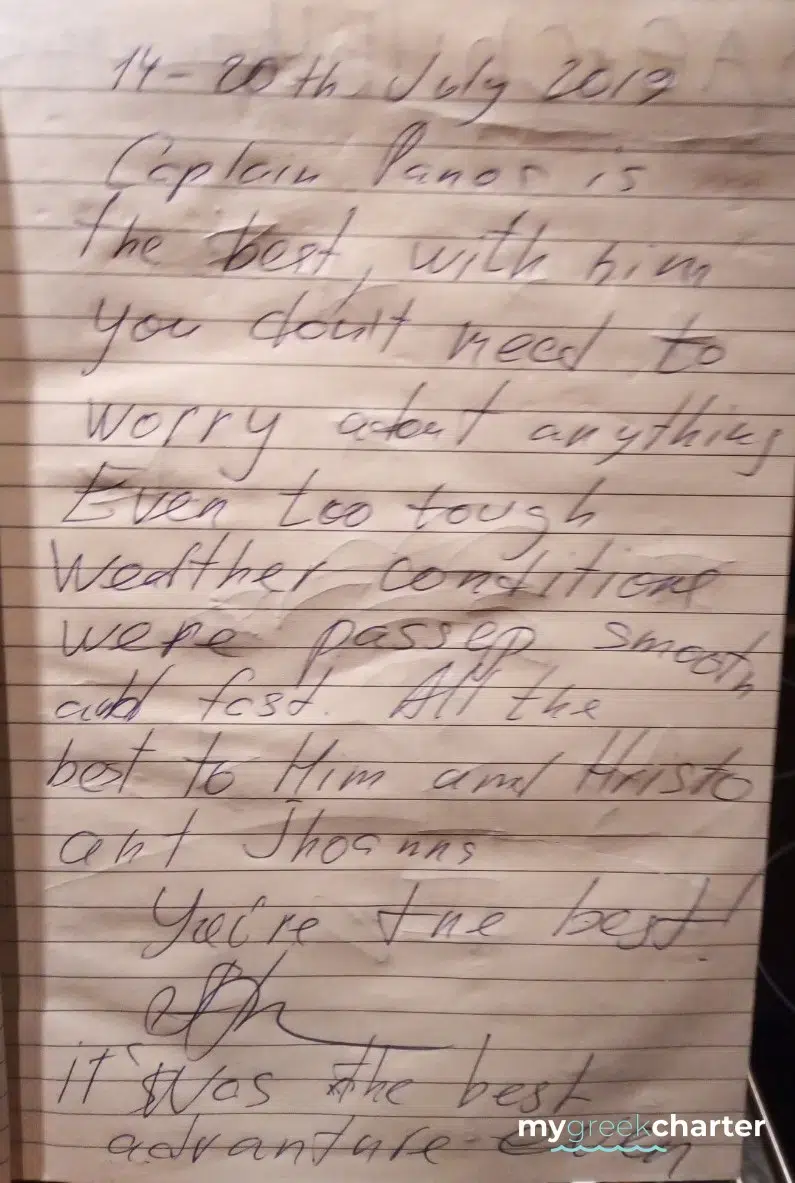 14-20th July 2019
Captain Panos is
the best, with him
you don't need to
worry about anything
Even too tough
Weather conditions
were passep smooth
and fast. All the
best to Him and Hristo
ant Jhoanns
You're the best!
it was the best
advanture
mygreekcharter